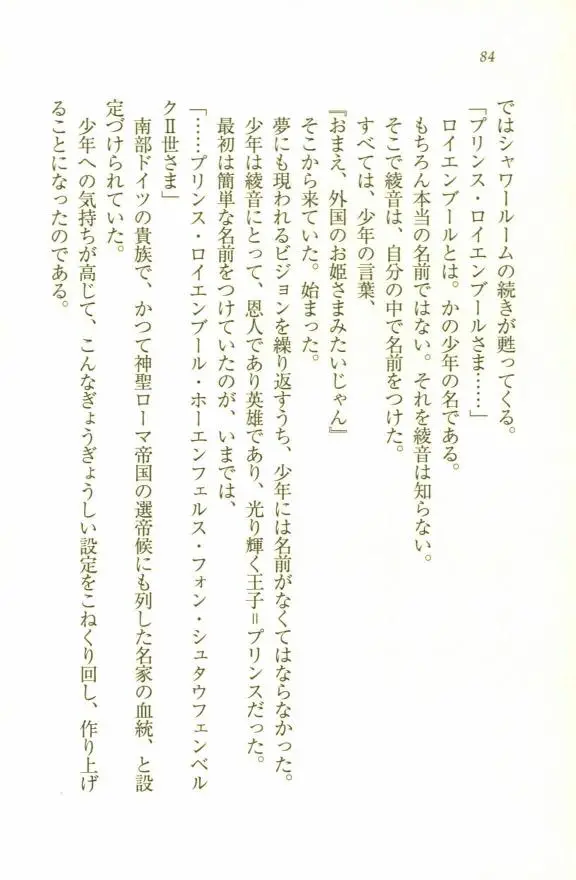 84
ではシャワールームの続きが甦ってくる。
「プリンス・ロイエンブールさま……」
ロイエンブールとは。かの少年の名である。
もちろん本当の名前ではない。それを綾音は知らない。
そこで綾音は、自分の中で名前をつけた。
すべては、少年の言葉、
『おまえ、外国のお姫さまみたいじゃん』
そこから来ていた。始まった。
夢にも現われるビジョンを繰り返すうち、少年には名前がなくてはならなかった。
少年は綾音にとって、恩人であり英雄であり、光り輝く王子＝プリンスだった。
最初は簡単な名前をつけていたのが、いまでは、
「……プリンス・ロイエンブール・ホーエンフェルス・フォン・シュタウフェンベル
クⅡ世さま」
南部ドイツの貴族で、かつて神聖ローマ帝国の選帝候にも列した名家の血統、と設
定づけられていた。
少年への気持ちが高じて、こんなぎょうぎょうしい設定をこねくり回し、作り上げ
ることになったのである。